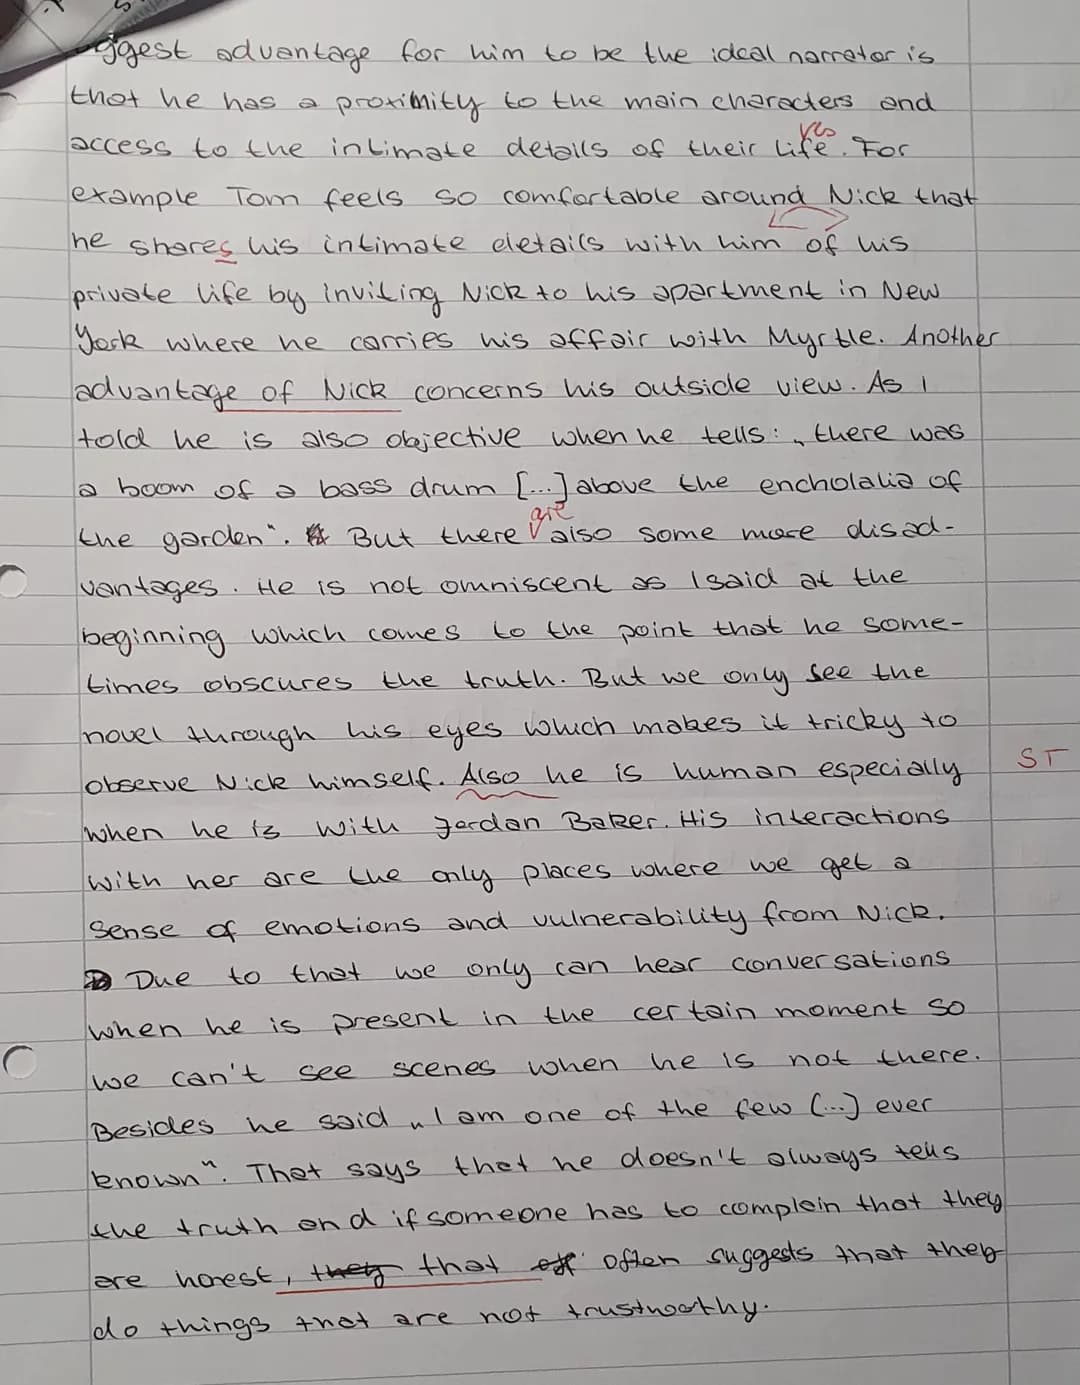 ggest advantage for him to be the ideal narrator is
that he has a proximity to the main characters and
ves
access to the intimate details of their life. For
example Tom feels so comfortable around Nick that
he shares his intimate details with him of his
private life by inviting Nick to his apartment in New
York where he carries his affair with Myrtle. Another
advantage of Nick concerns his outside view. As I
told he is also objective when he tells: „there was
a boom of a bass drum [...] above the encholalia of
are
the garden“. But there also some more disad-
vantages. He is not omniscent as I said at the
beginning which comes to the point that he some-
times obscures the truth. But we only see the
novel through his eyes which makes it tricky to
observe Nick himself. Also he is human especially ST
when he is with Jordan Baker. His interactions
with her are the only places where we get a
sense of emotions and vulnerability from Nick.
Due to that we only can hear conversations
when he is present in the certain moment so
we can't see scenes when he is not there.
Besides he said „I am one of the few (...] ever
known“. That says that he doesn't always tells
the truth and if someone has to complain that they
are honest, they that often suggests that they
do things that are not trustworthy.